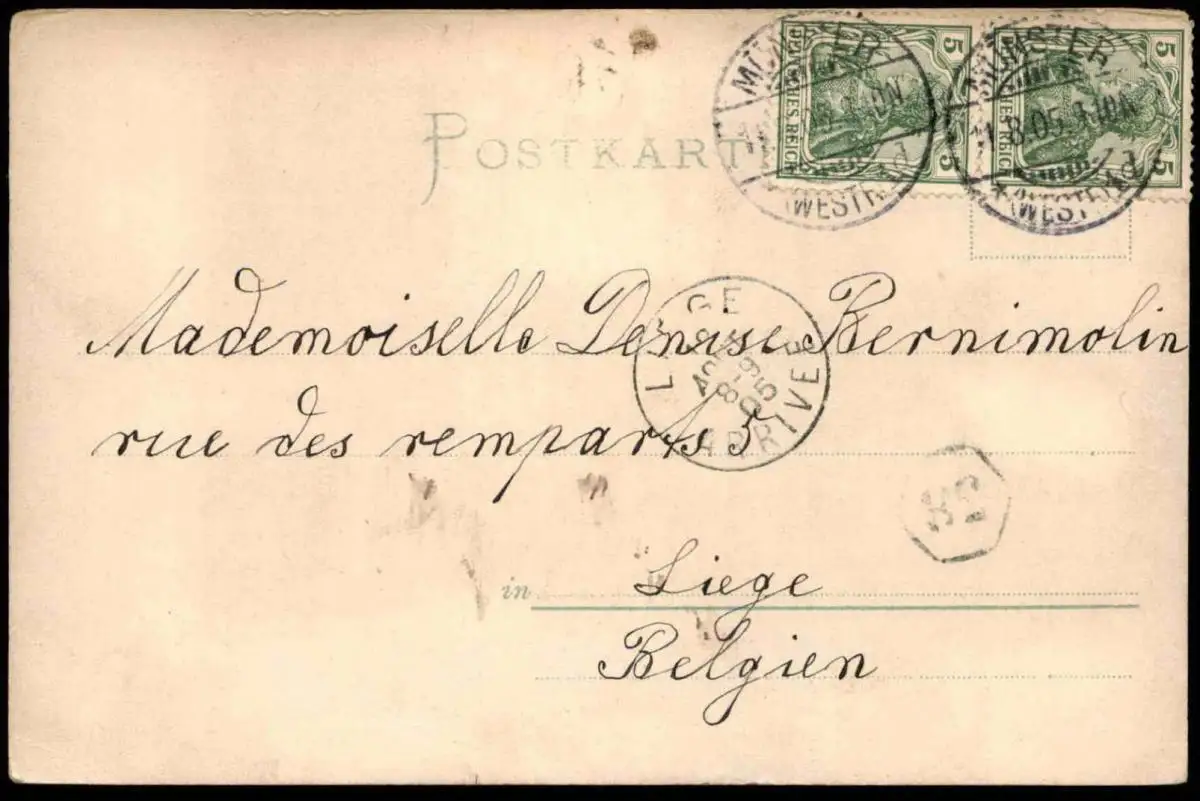 POSTKARTE
MÜNSTER
(WESTF.)
DEUTSCHES REICH
5
5
MÜNSTER
11.8.05.
(WESTF.)
REICH
5
5
Mademoiselle Denise Bernimolin
LIEGE
8-9
ARRIVEE
rue des remparts 5
in Liege
Belgien